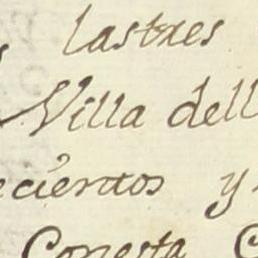 lastres
Villa dell
ecientos y
Conesta C